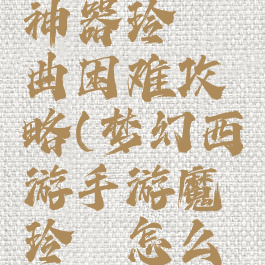 神器玲
曲困难攻
略(梦幻西
游手游魔
玲 怎么